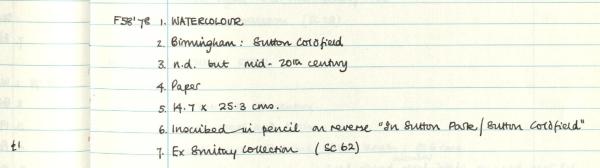 F58'78 1. WATERCOLOUR
2. Birmingham: Sutton Coldfield
3. n.d. but mid-20th century
4. Paper
5. 14.7 x 25.3 cms.
6. Inscribed in pencil on reverse "In Sutton Park / Sutton Coldfield"
£1 7. Ex Smitay Collection (SC 62)